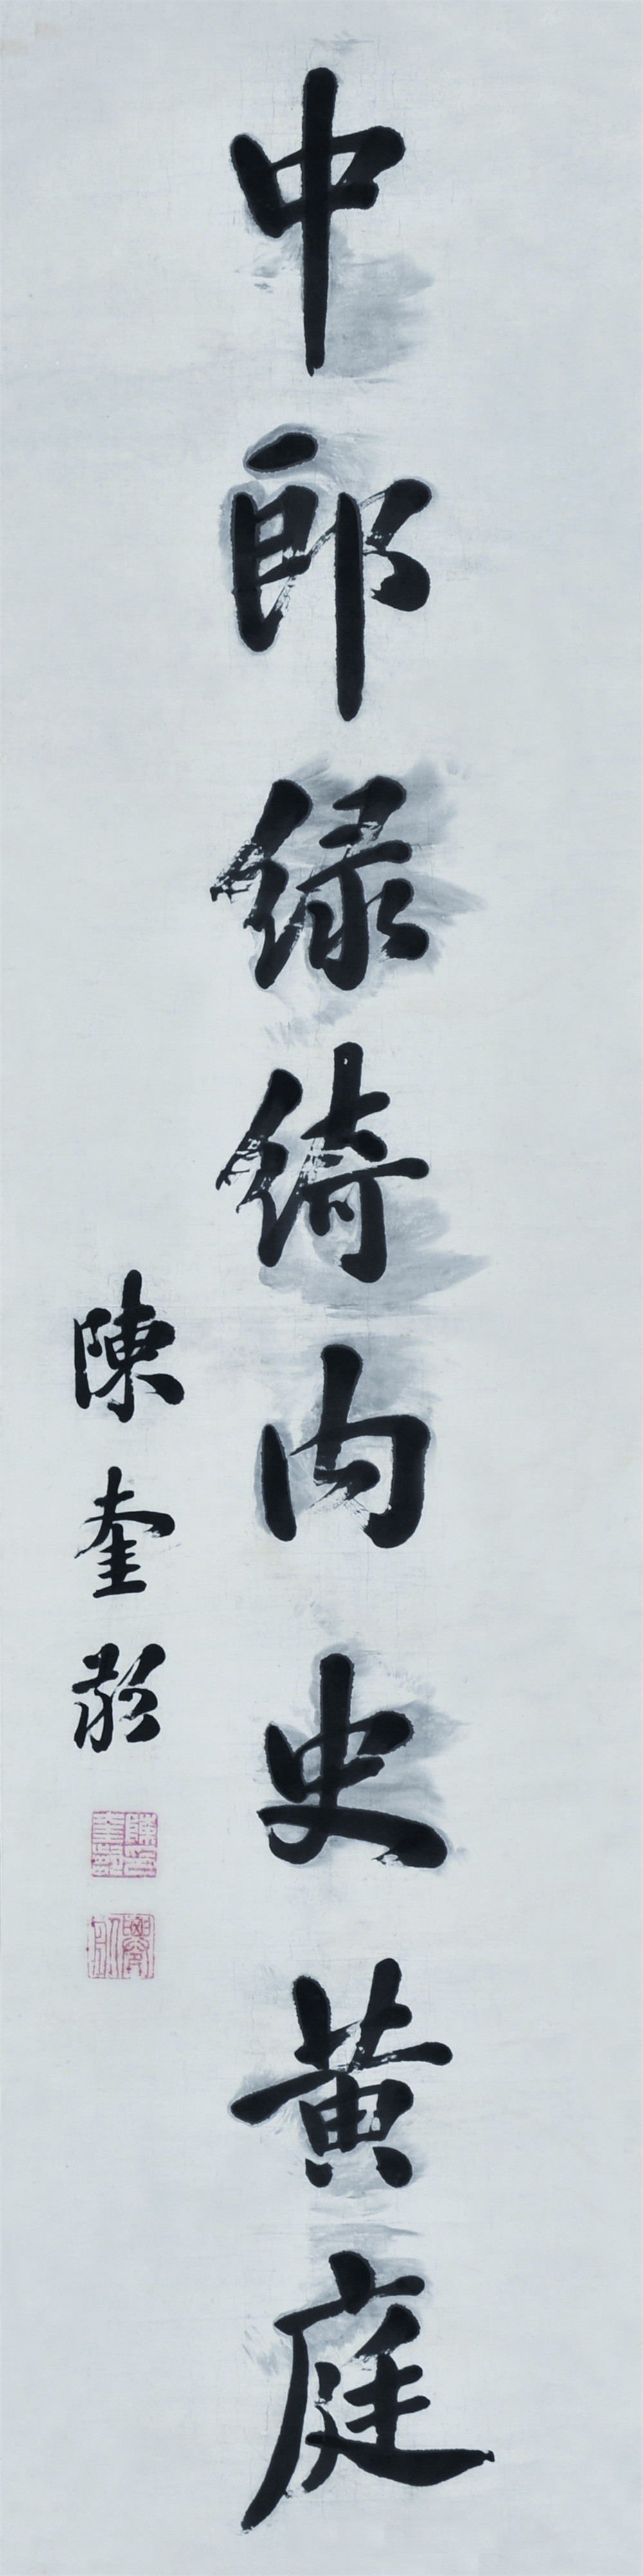 中郎綠綺內史黃庭
陳奎齡